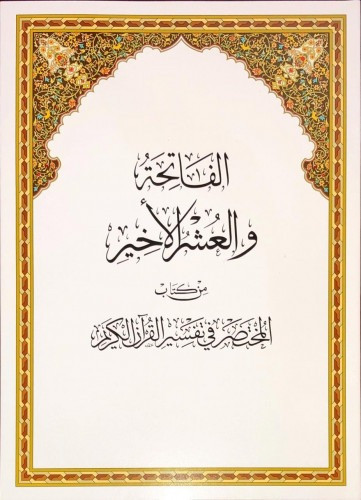 الفَاتِحَةُ
والعُشْرُ الأَخِيرِ
مِن كِتَاب
المُخْتَصَر فِي تَفْسِيرِ القُرْآنِ الكَرِيمِ